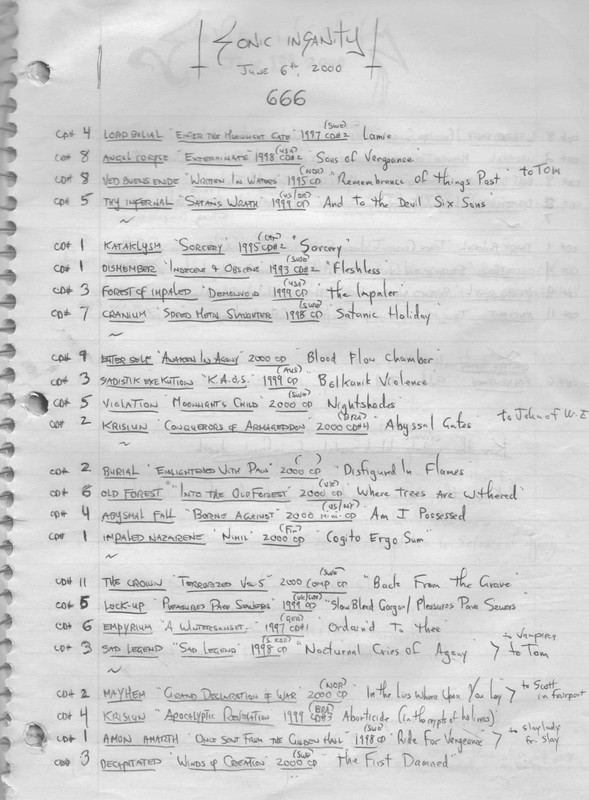 Sonic Insanity
June 6th, 2000
666
CD# 4 LORD BELIAL "Enter The Moonlight Gate" 1997 CD#2 (SWE) Lamia
CD# 8 ANGEL CORPSE "Exterminate" 1998 CD#2 (USA) "Sons of Vengeance"
CD# 8 VED BUENS ENDE "Written In Waters" 1995 CD (NOR) "Remembrance of Things Past" to TOM
CD# 5 THY INFERNAL "Satans Wrath" 1999 CD And to the Devil Six Sons
~
CD# 1 KATAKLYSM "Sorcery" 1995 CD#2 "Sorcery"
CD# 1 DISMEMBER "Indecent & Obscene" 1993 CD#2 (SWE) "Fleshless"
CD# 3 FOREST OF IMPALED "Demonvoid" 1999 CD (USA) "The Impaler"
CD# 7 CRANIUM "Speed Metal Slaughter" 1998 CD (SWE) "Satanic Holiday"
~
CD# 9 ENTER SELF "Awaken In Agony" 2000 CD "Blood Flow Chamber"
CD# 3 SADISTIK EXEKUTION "K.A.O.S." 1999 CD (AUS) "Balkanik Violence
CD# 5 VIOLATION "Moonlight's Child" 2000 CD Nightshades
CD# 2 KRISIUN "Conquerors of Armageddon" 2000 CD#4 (BRA) Abyssal Gates to John of W.E
~
CD# 2 BURIAL "Enlightened With Pain" 2000 CD ( ) "Disfigured In Flames"
CD# 6 OLD FOREST "Into The Old Forest" 2000 CD (UK) "Where trees Are withered"
CD# 4 ABYSMAL FALL "Borne Against" 2000 Mini-CD (US/NY) Am I Possessed
CD# 1 IMPALED NAZARENE "Nihil" 2000 CD (Fin) "Cogito Ergo Sum"
~
CD# 11 THE CROWN "Terrorized Vol 5" 2000 Comp. CD (SWE) "Back From the Grave"
CD# 5 LOCK-UP "Pleasures Pave Sewers" 1999 CD "Slow Bleed Gorgon / Pleasures Pave Sewers
CD# 6 EMPYRIUM "A Wintersunset." 1997 CD#1 (GER) "Ordain'd To thee"
CD# 3 SAD LEGEND "Sad Legend" 1998 CD (S. KOR) "Nocturnal Cries of Agony > to Tom
~
CD# 2 MAYHEM "Grand Declaration of War" 2000 CD (NOR) "In the Lies Where Upon You Lay > to Scott in fairport
CD# 4 KRISIUN "Apocalyptic Revelation 1999 CD#3 (BRA) Aborticide (In the crypts of holiness)
CD# 1 AMON AMARTH "Once Sent From The Golden Hall" 1998 CD (SWE) "Ride For Vengeance"
CD# 3 DECAPITATED "Winds of Creation" 2000 CD "The First Damned"